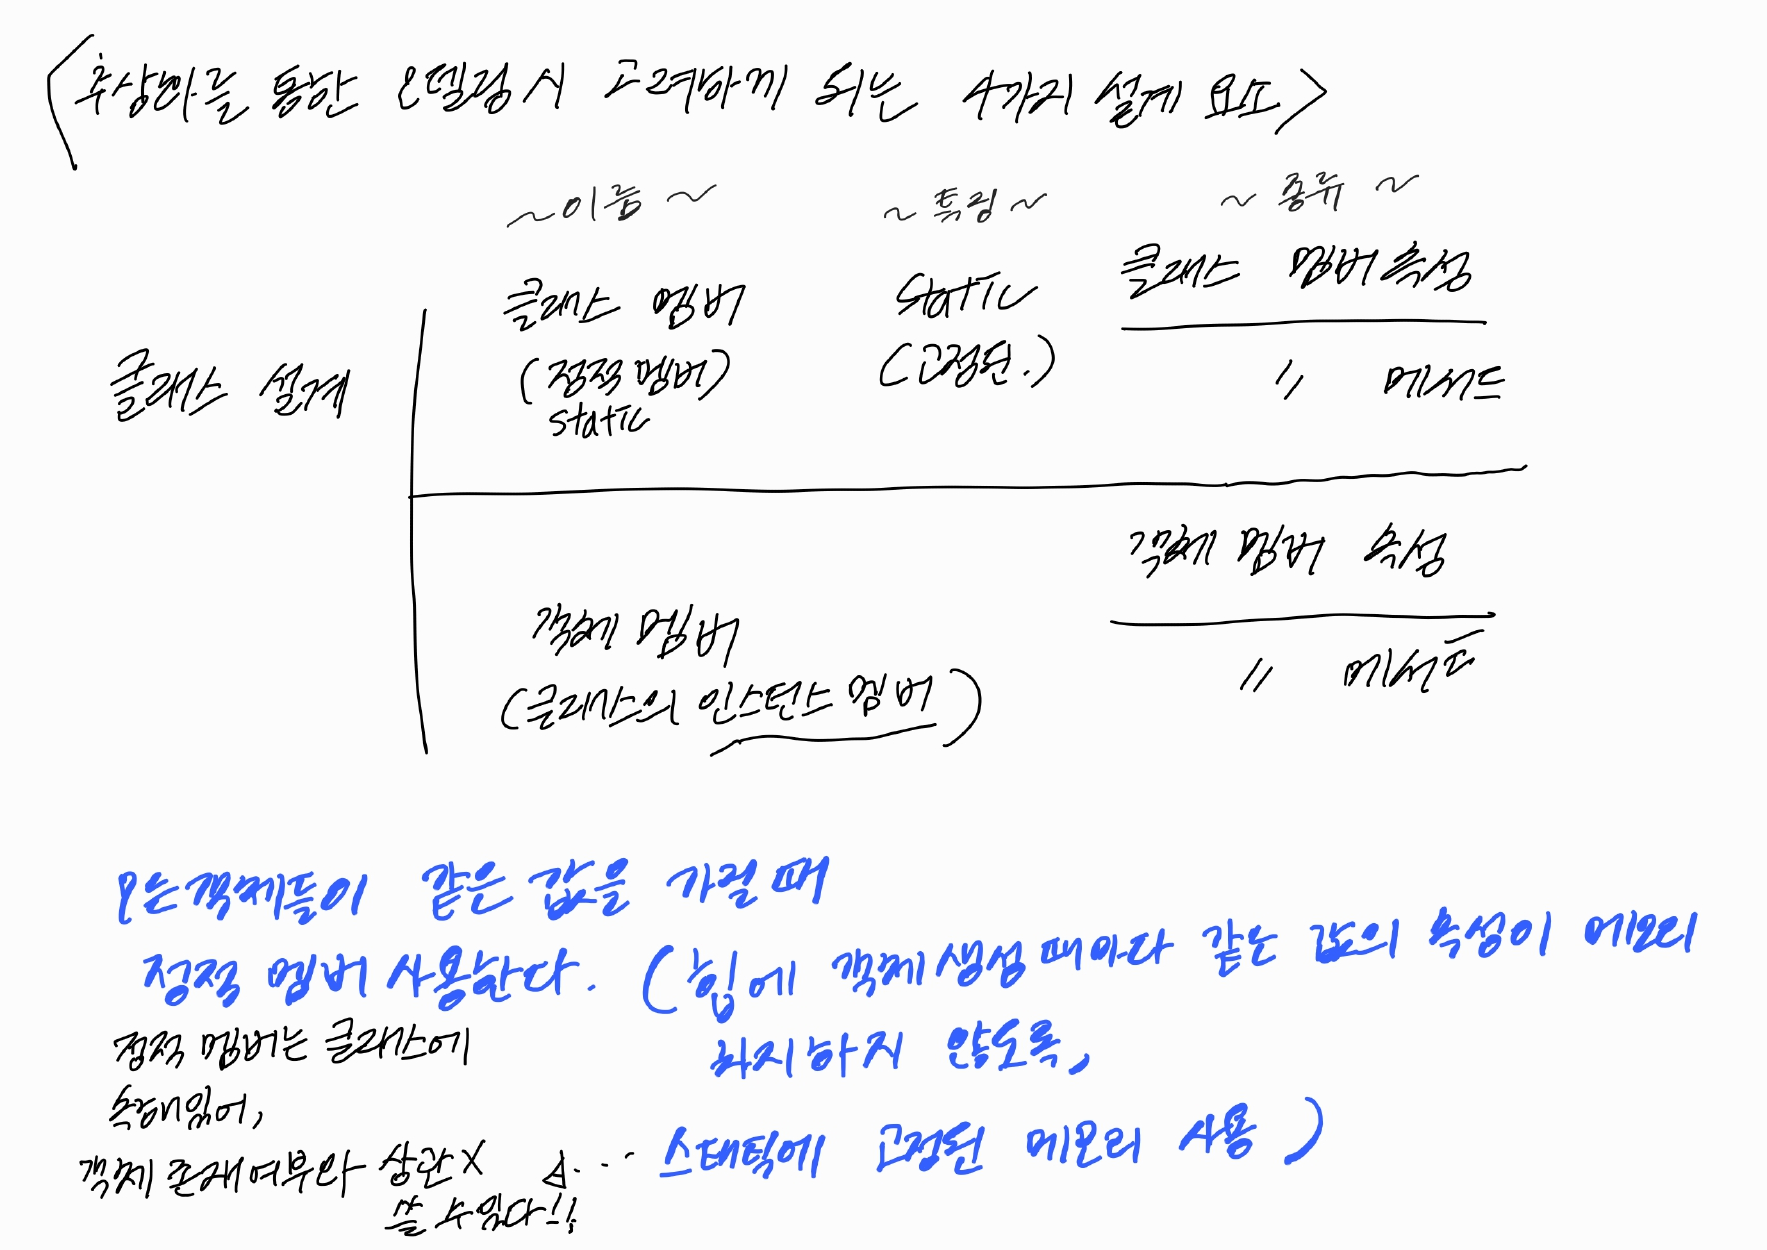 <추상화를 통한 모델링시 고려하게 되는 4가지 설계 요소>
~이름~ ~특징~ ~종류~
클래스 멤버 static 클래스 멤버속성
클래스 설계 (정적멤버) (고정된.) 〃 메서드
static
객체 멤버 속성
객체 멤버
(클래스의 인스턴스 멤버) 〃 메서드
모든객체들이 같은 값을 가질때
정적 멤버 사용한다. (힙에 객체생성때마다 같은 값의 속성이 메모리
차지하지 않도록,
정적 멤버는 클래스에
속해있어,
스태틱에 고정된 메모리 사용)
객체 존재여부와 상관X
쓸 수있다!!